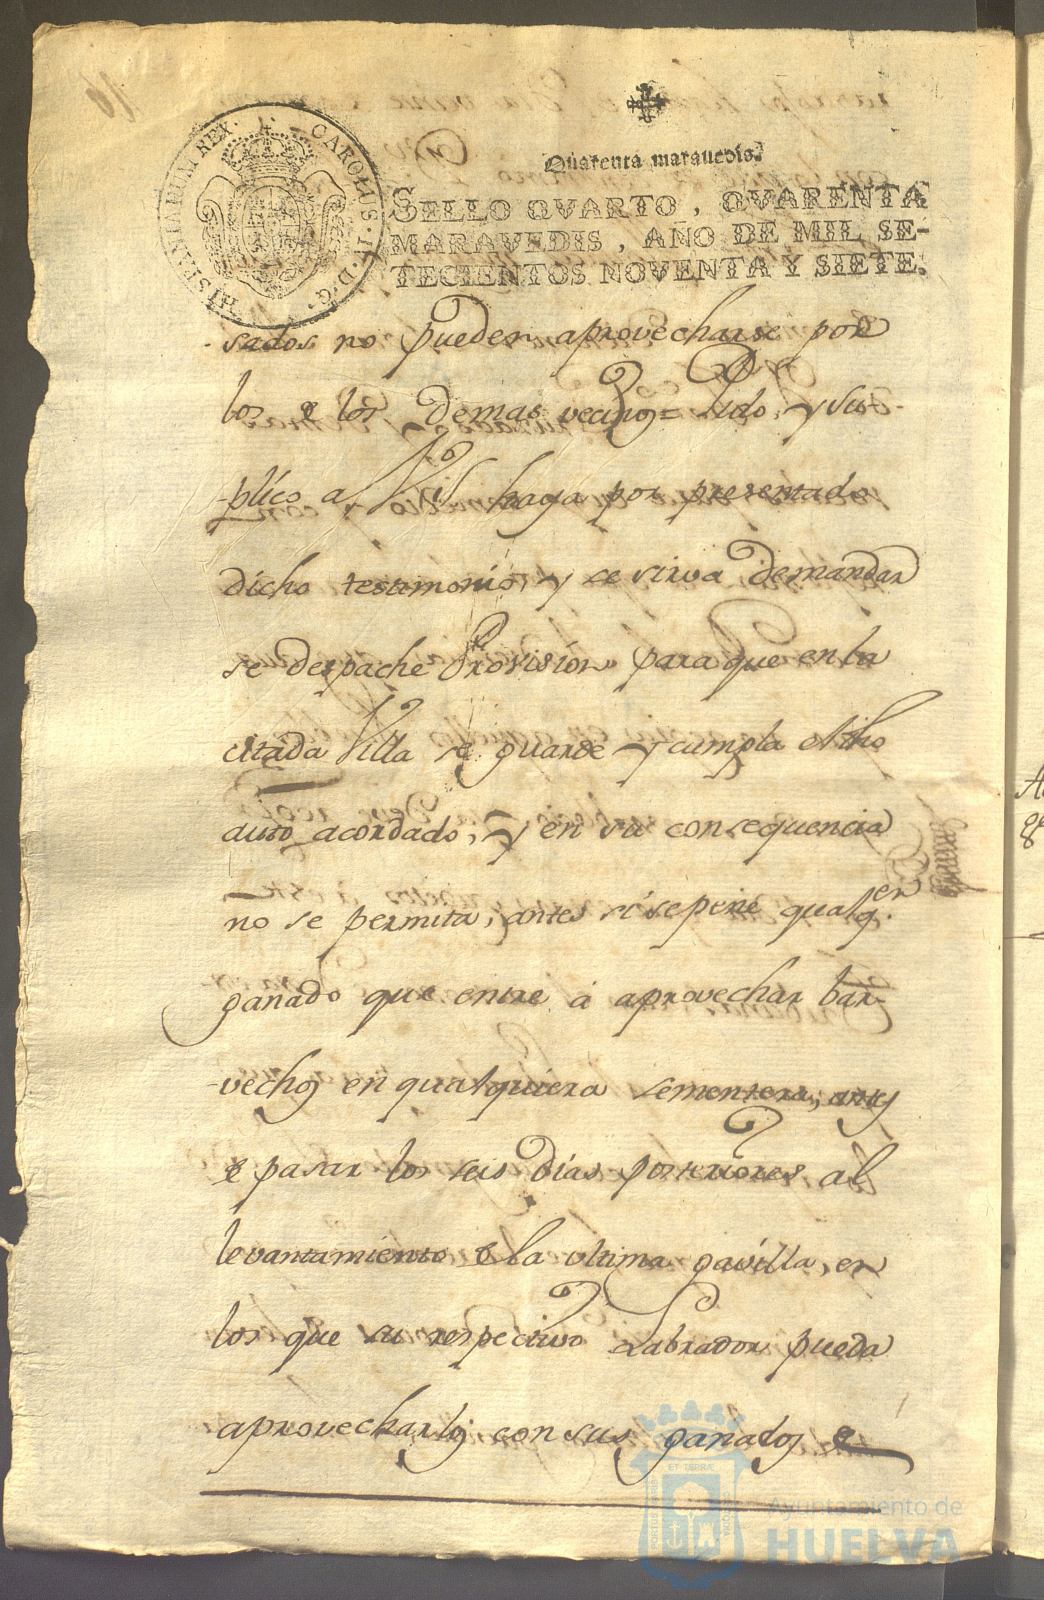 Quarenta maravedis.
SELLO QVARTO, QVARENTA
MARAVEDIS, AÑO DE MIL SE-
TECIENTOS NOVENTA Y SIETE.
CAROLUS·IV·D·G·HISPANIARUM REX·
sados no pueden aprovecharse por
los de los demas vecinos=
y su-
plico a V.S. haya por presentado
dicho testimonio, y se sirva demandar
se despache Provision para que en la
citada Villa se guarde y cumpla el dho
auto acordado, y en su consequencia
no se permita, antes si se pene qualqer
ganado que entre á aprovechar bar-
vechos en qualquiera sementera, antes
de pasar los seis dias posteriores al
levantamiento de la ultima gavilla, en
los que su respectivo Labrador pueda
aprovecharlos con sus ganados
Ayuntamiento de
HUELVA